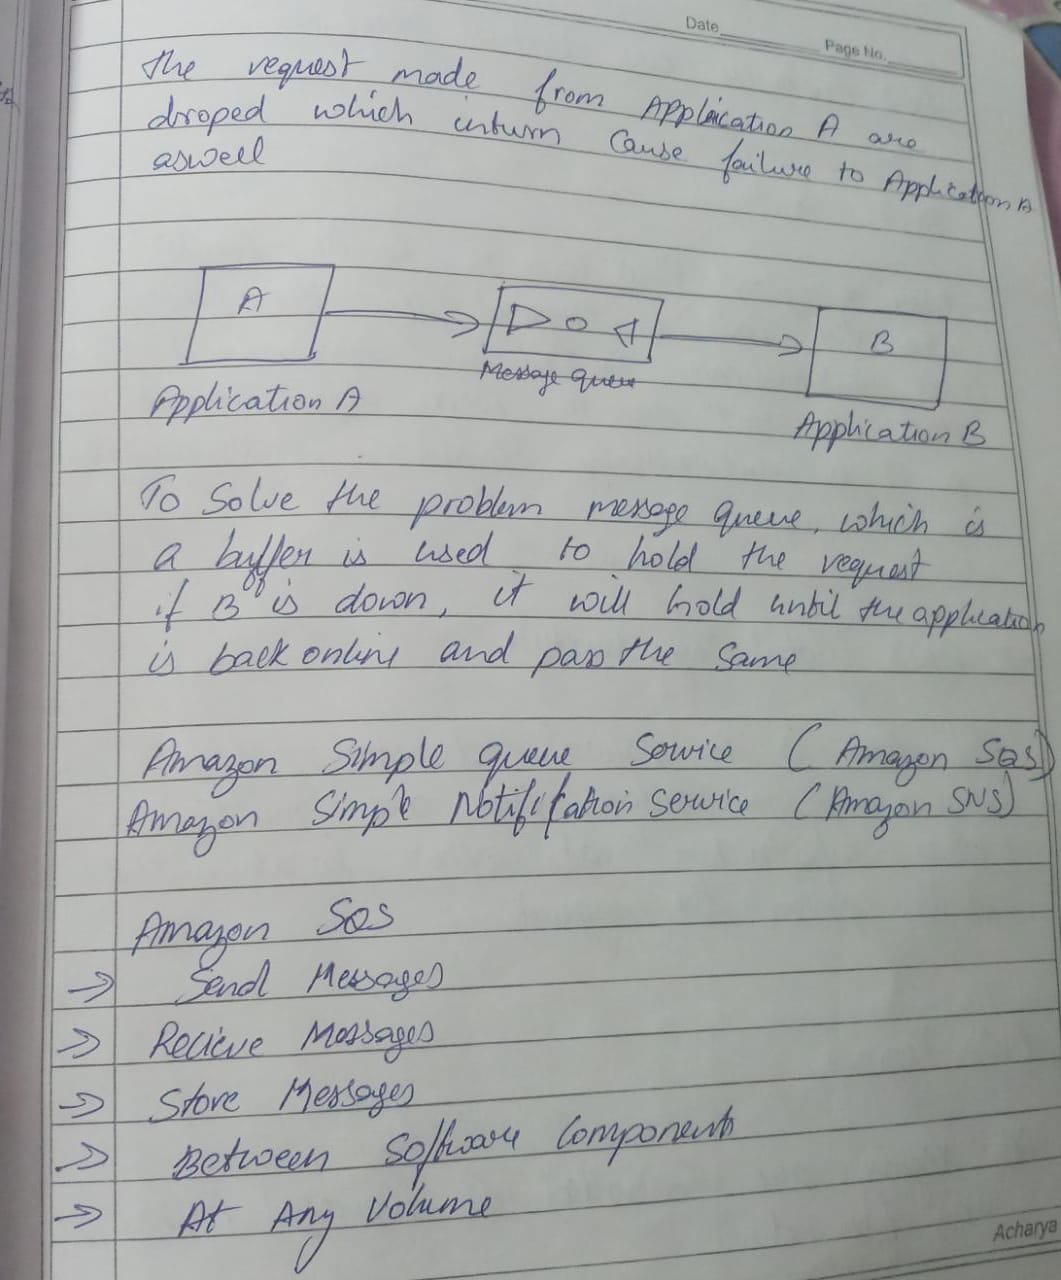 Date
Page No.
The request made from Application A are
droped which inturn Cause failure to Application A
aswell
A
B
Message Queue
Application A
Application B
To Solve the problem message queue, which is
a buffer is used to hold the request
if B is down, it will hold until the application
is back online and pass the Same
Amazon Simple queue Service (Amazon SQS)
Amazon Simple Notification Service (Amazon SNS)
Amazon SQS
→ Send Messages
→ Recieve Messages
→ Store Messages
→ Between Software Components
→ At Any Volume
Acharya